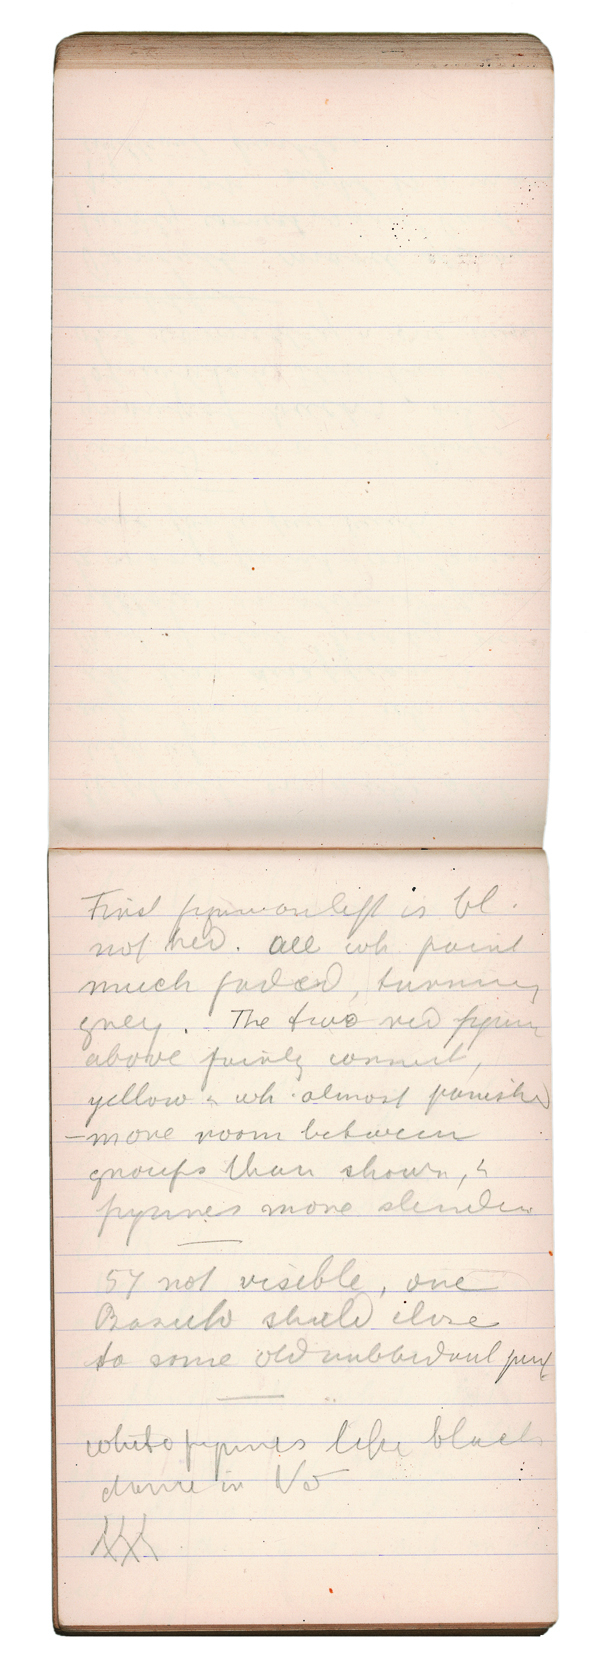 First figure on left is bl.
not red. all wh paint
much faded, turning
grey. The two red figures
above faintly correct,
yellow & wh. almost vanished
— more room between
groups than shown, &
figures more slender
57 not visible, one
Basuto shield close
to some old rubbed out
white figures like black
dance in Vo